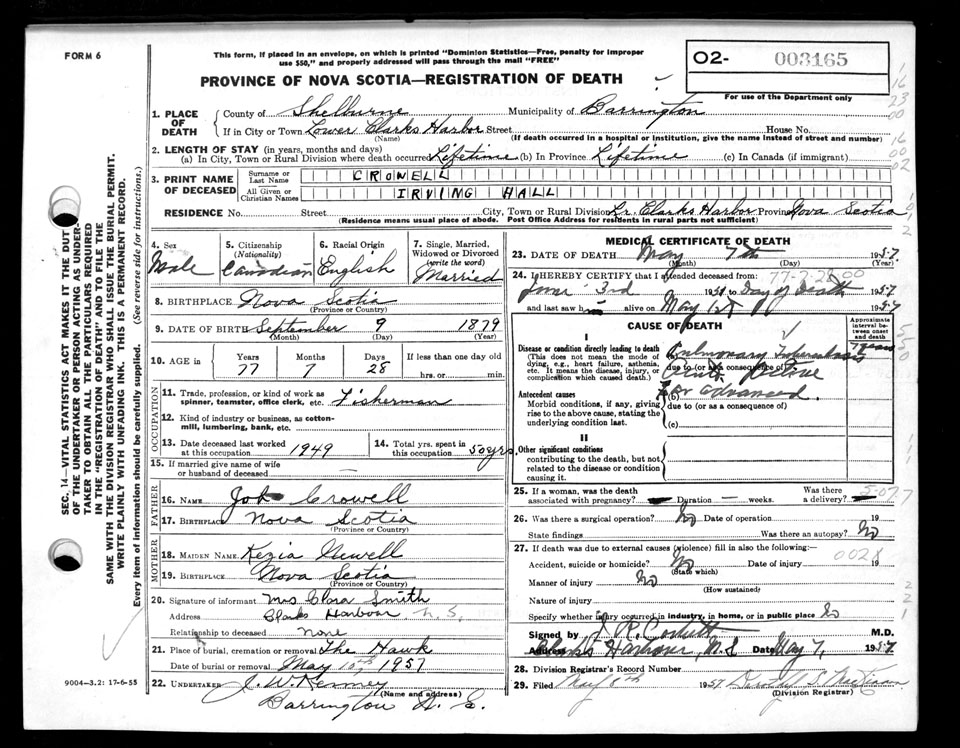 FORM 6
This form, if placed in an envelope, on which is printed "Dominion Statistics—Free, penalty for improper
use $50," and properly addressed will pass through the mail "FREE"
02- 003165
For use of the Department only
PROVINCE OF NOVA SCOTIA—REGISTRATION OF DEATH
1. PLACE OF DEATH
County of Shelburne Municipality of Barrington
If in City or Town Lower Clarks Harbor Street House No.
(Name) (If death occurred in a hospital or Institution, give the name instead of street and number)
2. LENGTH OF STAY (in years, months and days)
(a) In City, Town or Rural Division where death occurred Lifetime (b) In Province Lifetime (c) In Canada (if immigrant)
3. PRINT NAME OF DECEASED
Surname or Last Name CROWELL
All Given or Christian Names IRVING HALL
RESIDENCE No. Street City, Town or Rural Division Lr. Clarks Harbor Province Nova Scotia
(Residence means usual place of abode. Post Office Address for residents in rural parts not sufficient)
4. Sex Male
5. Citizenship (Nationality) Canadian
6. Racial Origin English
7. Single, Married, Widowed or Divorced (write the word) Married
8. BIRTHPLACE Nova Scotia
(Province or Country)
9. DATE OF BIRTH September 9 1879
(Month) (Day) (Year)
10. AGE in Years Months Days If less than one day old
77 7 28 hrs. or min.
OCCUPATION
11. Trade, profession, or kind of work as spinner, teamster, office clerk, etc. Fisherman
12. Kind of industry or business, as cotton-mill, lumbering, bank, etc.
13. Date deceased last worked at this occupation 1949
14. Total yrs. spent in this occupation 50 yrs.
15. If married give name of wife or husband of deceased —
FATHER
16. NAME Crowell
17. BIRTHPLACE Nova Scotia
(Province or Country)
MOTHER
18. MAIDEN NAME Kezia Newell
19. BIRTHPLACE Nova Scotia
(Province or Country)
20. Signature of informant Mrs Clara Smith
Address Clarks Harbour N.S.
Relationship to deceased None
21. Place of burial, cremation or removal The Hawk
Date of burial or removal May 10th 1957
22. UNDERTAKER J. W. Kenney
(Name and address)
Barrington N. S.
9004—3.2: 17-6-55
MEDICAL CERTIFICATE OF DEATH
23. DATE OF DEATH May 7th 1957
(Month) (Day) (Year)
24. I HEREBY CERTIFY that I attended deceased from: 77-7-28 00
June 3rd 19 to Day of Death 1957
and last saw h alive on May 1957
CAUSE OF DEATH
Approximate interval between onset and death
I
Disease or condition directly leading to death
(This does not mean the mode of dying, e.g., heart failure, asthenia, etc. It means the disease, injury, or complication which caused death.)
(a) Pulmonary Tuberculosis
due to (or as a consequence of)
Active
Antecedent causes
Morbid conditions, if any, giving rise to the above cause, stating the underlying condition last.
(b) Far advanced.
due to (or as a consequence of)
(c)
II
Other significant conditions
contributing to the death, but not related to the disease or condition causing it.
25. If a woman, was the death associated with pregnancy? — Duration — weeks. Was there a delivery? —
26. Was there a surgical operation? No Date of operation 19
State findings Was there an autopsy? No
27. If death was due to external causes (violence) fill in also the following:—
Accident, suicide or homicide? No Date of injury 19
(State which)
Manner of injury No
(How sustained)
Nature of injury
Specify whether injury occurred in industry, in home, or in public place No
Signed by M.D.
Address Clarks Harbour, Date May 7, 1957
28. Division Registrar's Record Number
29. Filed May 8th 1957
(Division Registrar)
SEC. 14—VITAL STATISTICS ACT MAKES IT THE DUTY
OF THE UNDERTAKER OR PERSON ACTING AS UNDER-
TAKER TO OBTAIN ALL THE PARTICULARS REQUIRED
IN THE "REGISTRATION OF DEATH" AND TO FILE THE
SAME WITH THE DIVISION REGISTRAR WHO SHALL ISSUE THE BURIAL PERMIT.
WRITE PLAINLY WITH UNFADING INK. THIS IS A PERMANENT RECORD.
Every item of information should be carefully supplied. (See reverse side for instructions.)